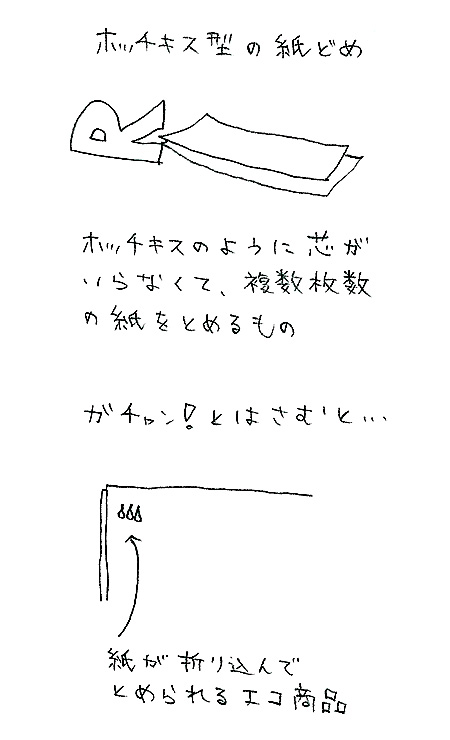 ホッチキス型の紙どめ
ホッチキスのように芯が
いらなくて、複数枚数
の紙をとめるもの
ガチャン!とはさむと…
紙が折り込んで
とめられるエコ商品